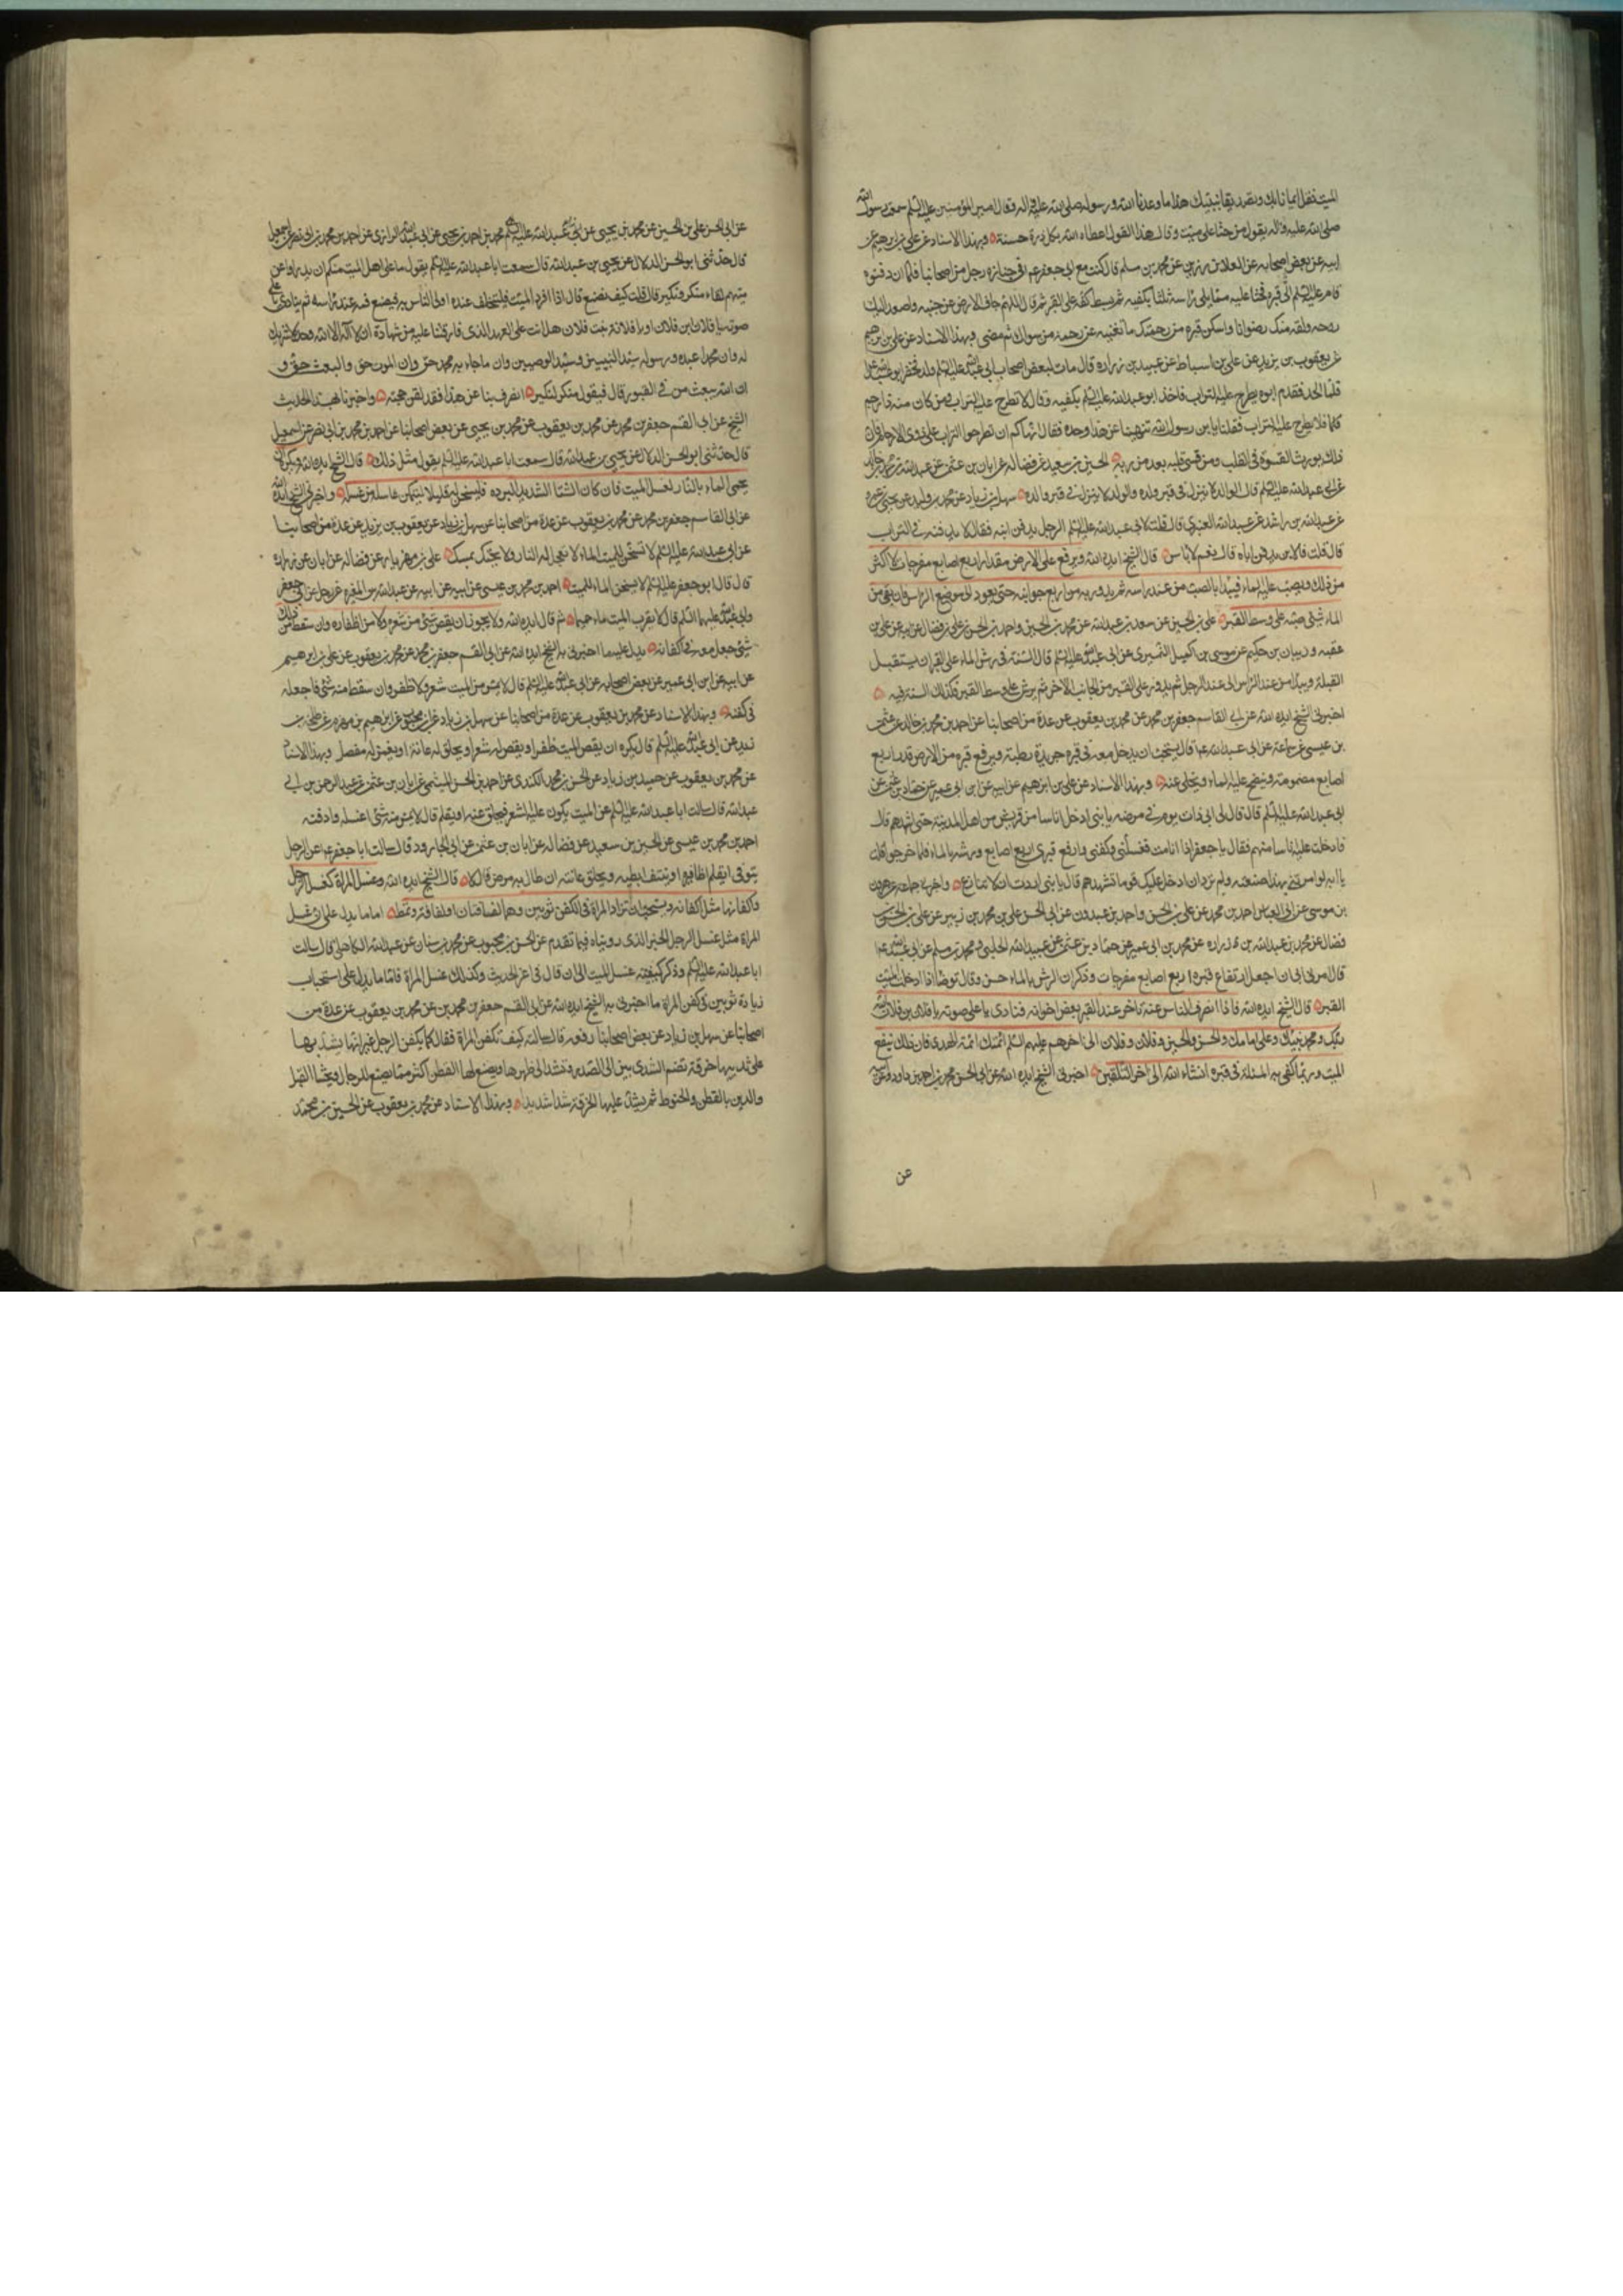 الميت فقل ايمانا بك وتصديقا بنبيك هذا ما وعدنا الله ورسوله صلى الله عليه واله وقال امير المؤمنين عليه السلم سمعت رسول الله
صلى الله عليه واله يقول من حثا على ميت وقال هذا القول اعطاه الله بكل ذرة حسنة وبهذا الاسناد عن علي بن ابرهيم عن
ابيه عن بعض اصحابه عن العلا بن رزين عن محمد بن مسلم قال كنت مع ابي جعفر عم في جنازة رجل من اصحابنا فلما ان دفنوه
قام عليه السلم الى قبره فحثا عليه مما يلي راسه ثلثا بكفيه ثم بسط كفه على القبر ثم قال اللهم جاف الارض عن جنبيه واصعد اليك
روحه ولقه منك رضوانا واسكن قبره من رحمتك ما تغنيه عن رحمة من سواك ثم مضى وبهذا الاسناد عن علي بن ابرهيم
عن يعقوب بن يزيد عن علي بن اسباط عن عبيد بن زرارة قال مات لبعض اصحاب ابي عبد الله عليه السلم ولد فحضر ابو عبد الله
فلما الحد تقدم ابوه يطرح عليه التراب فاخذ ابو عبد الله عليه السلم بكفيه وقال لا تطرح عليه التراب ومن كان منه ذا رحم
فلا يطرح عليه التراب فقلنا يابن رسول الله تنهينا عن هذا وحده فقال انهاكم ان تطرحوا التراب على ذوي الارحام فان
ذلك يورث القسوة في القلب ومن قسى قلبه بعد من ربه الحسين بن سعيد عن فضالة عن ابان بن عثمن عن عبد الله بن محمد بن خالد
عن ابي عبد الله عليه السلم قال الوالد لا ينزل في قبر ولده والولد لا ينزل في قبر والده سهل بن زياد عن محمد بن وليد عن يحيى بن عمرو
عن عبد الله بن راشد عن عبد الله العنبري قال قلت لابي عبد الله عليه السلم الرجل يدفن ابنه فقال لا يدفنه في التراب
قال قلت فالابن يدفن اباه قال نعم لا باس قال الشيخ ايده الله ويرفع على الارض مقدار اربع اصابع مفرجات لا اكثر
من ذلك ويصب عليه الماء فيبدا بالصب من عند راسه ثم يدور به من اربع جوانبه حتى يعود الى موضع الراس فان بقي من
الماء شئ صبه على وسط القبر علي بن الحسين عن سعد بن عبد الله عن محمد بن الحسين واحمد بن الحسن بن علي بن فضال عن ابيه عن علي بن
عقبه وذبيان بن حكيم عن موسى بن اكيل النميري عن ابي عبد الله عليه السلم قال السنة في رش الماء على القبر ان يستقبل
القبلة ويبدا من عند الراس الى عند الرجل ثم يدور على القبر من الجانب الاخر ثم يرش على وسط القبر فكذلك السنة فيه
اخبرني الشيخ ايده الله عن ابي القاسم جعفر بن محمد عن محمد بن يعقوب عن عدة من اصحابنا عن احمد بن محمد بن خالد عن عثمن
بن عيسى عن سماعة عن ابي عبد الله عم قال يستحب ان يدخل معه في قبره جريدة رطبة ويرفع قبره من الارض قدر اربع
اصابع مضمومة وينضح عليه الماء ويخلى عنه وبهذا الاسناد عن علي بن ابرهيم عن ابيه عن ابن ابي عمير عن حماد بن عثمن عن
ابي عبد الله عليه السلم قال قال لي ابي ذات يوم في مرضه يا بني ادخل اناسا من قريش من اهل المدينة حتى اشهدهم قال
فادخلت عليه اناسا منهم فقال يا جعفر اذا انا مت فغسلني وكفني وارفع قبري اربع اصابع ورشه بالماء فلما خرجوا قلت
يا ابه لو امرتني بهذا صنعته ولم ترد ان ادخل عليك قوما تشهدهم قال يا بني اردت ان لا تنازع واخبرنا جماعة عن هرون
بن موسى عن ابي العباس احمد بن محمد عن علي بن الحسن واحمد بن عبدون عن ابي الحسن علي بن محمد بن زبير عن علي بن الحسن بن
فضال عن محمد بن عبد الله بن زرارة عن محمد بن ابي عمير عن حماد بن عثمن عن عبيد الله الحلبي ومحمد بن مسلم عن ابي عبد الله عم
قال امرني ابي ان اجعل ارتفاع قبره اربع اصابع مفرجات وذكر ان الرش بالماء حسن وقال توضا اذا ادخلت الميت
القبر قال الشيخ ايده الله فاذا انصرف الناس عنه تاخر عند القبر بعض اخوانه فنادى باعلى صوته يا فلان بن فلان الله
ربك ومحمد نبيك وعلي امامك والحسن والحسين وفلان وفلان الى اخرهم عليهم السلم ائمتك ائمة الهدى فان ذلك ينفع
الميت وربما كفي به المسئلة في قبره انشاء الله الى اخر التلقين اخبرني الشيخ ايده الله عن ابي الحسن محمد بن احمد بن داود
عن
عن ابي الحسن علي بن الحسين عن محمد بن يحيى عن ابي عبد الله عليه السلم محمد بن احمد بن يحيى عن ابي عبد الله الرازي عن احمد بن محمد بن ابي نصر عن اسمعيل
قال حدثني ابو الحسن الدلال عن يحيى بن عبد الله قال سمعت ابا عبد الله عليه السلم يقول ما على اهل الميت منكم ان يدراوا عن
ميتهم لقاء منكر ونكير قال قلت كيف نصنع قال اذا افرد الميت فليتخلف عنده اولى الناس به فيضع فمه عند راسه ثم ينادي باعلى
صوته يا فلان ابن فلان او يا فلانة بنت فلان هل انت على العهد الذي فارقتنا عليه من شهادة ان لا اله الا الله وحده لا شريك
له وان محمدا عبده ورسوله سيد النبيين وسيد الوصيين وان ما جاء به محمد حق وان الموت حق والبعث حق و
ان الله يبعث من في القبور قال فيقول منكر لنكير انصرف بنا عن هذا فقد لقن حجته واخبرنا بهذا الحديث
الشيخ عن ابي القسم جعفر بن محمد عن محمد بن يعقوب عن محمد بن يحيى عن بعض اصحابنا عن احمد بن محمد بن ابي نصر عن اسمعيل
قال حدثني ابو الحسن الدلال عن يحيى بن عبد الله قال سمعت ابا عبد الله عليه السلم يقول مثل ذلك قال الشيخ ايده الله ويكره ان
يحمى الماء بالنار لغسل الميت فان كان الشتا الشديد البرد فليسخن له قليلا ليتمكن غاسله من غسله واخبرني الشيخ ايده الله
عن ابي القاسم جعفر بن محمد عن محمد بن يعقوب عن عدة من اصحابنا عن سهل بن زياد عن يعقوب بن يزيد عن عدة من اصحابنا
عن ابي عبد الله عليه السلم لا تسخن للميت الماء لا تعجل له النار ولا يحنك بمسك علي بن مهزيار عن فضالة عن ابان عن زرارة
قال قال ابو جعفر عليه السلم لا يسخن الماء للميت احمد بن محمد بن عيسى عن ابيه عن عبد الله بن المغيرة عن رجل عن ابي جعفر
وابي عبد الله عليهما السلم قال لا يقرب الميت ماء حميما ثم قال ايده الله ولا يجوز ان يقص شئ من شعره ولا من اظفاره وان سقط من ذلك
شئ جعل معه في اكفانه يدل عليه ما اخبرني به الشيخ ايده الله عن ابي القسم جعفر بن محمد عن محمد بن يعقوب عن علي بن ابرهيم
عن ابيه عن ابن ابي عمير عن بعض اصحابه عن ابي عبد الله عليه السلم قال لا يمس من الميت شعر ولا ظفر وان سقط منه شئ فاجعله
في كفنه وبهذا الاسناد عن محمد بن يعقوب عن عدة من اصحابنا عن سهل بن زياد عن ابن محبوب عن ابرهيم بن مهزم عن طلحة بن
زيد عن ابي عبد الله عليه السلم قال يكره ان يقص للميت ظفر او يقص له شعر او يحلق له عانة او يغمض له مفصل وبهذا الاسناد
عن محمد بن يعقوب عن حميد بن زياد عن الحسن بن محمد الكندي عن احمد بن الحسن الميثمي عن ابان بن عثمن عن عبد الرحمن بن ابي
عبد الله قال سالت ابا عبد الله عليه السلم عن الميت يكون عليه الشعر فيحلق عنه او يقلم قال لا يمس منه شئ اغسله وادفنه
احمد بن محمد بن عيسى عن الحسين بن سعيد عن فضالة عن ابان بن عثمن عن ابي الجارود قال سالت ابا جعفر عم عن الرجل
يتوفى ايقلم اظافيره او ينتف ابطيه ويحلق عانته ان طال به مرض قال لا قال الشيخ ايده الله وغسل المراة كغسل الرجل
واكفانها مثل اكفانه ويستحب ان تزاد المراة في الكفن ثوبين وهما لفافتان او لفافة ونمط اما ما يدل على ان غسل
المراة مثل غسل الرجل الخبر الذي رويناه فيما تقدم عن الحسن بن محبوب عن محمد بن سنان عن عبد الله الكاهلي قال سالت
ابا عبد الله عليه السلم وذكر كيفية غسل الميت الى ان قال في اخر الحديث وكذلك غسل المراة فاما ما يدل على استحباب
زيادة ثوبين في كفن المراة ما اخبرني به الشيخ ايده الله عن ابي القسم جعفر بن محمد بن عن محمد بن يعقوب عن عدة من
اصحابنا عن سهل بن زياد عن بعض اصحابنا رفعه قال سالته كيف تكفن المراة فقال كما يكفن الرجل غير انها يشد بها
على ثدييها خرقة تضم الثدي بين الى الصدر وتشد الى ظهرها ويصنع لها القطن اكثر مما يصنع للرجل ويحشا القبل
والدبر بالقطن والحنوط ثم يشد عليها الخرقة شدا شديدا وبهذا الاسناد عن محمد بن يعقوب عن الحسين بن محمد